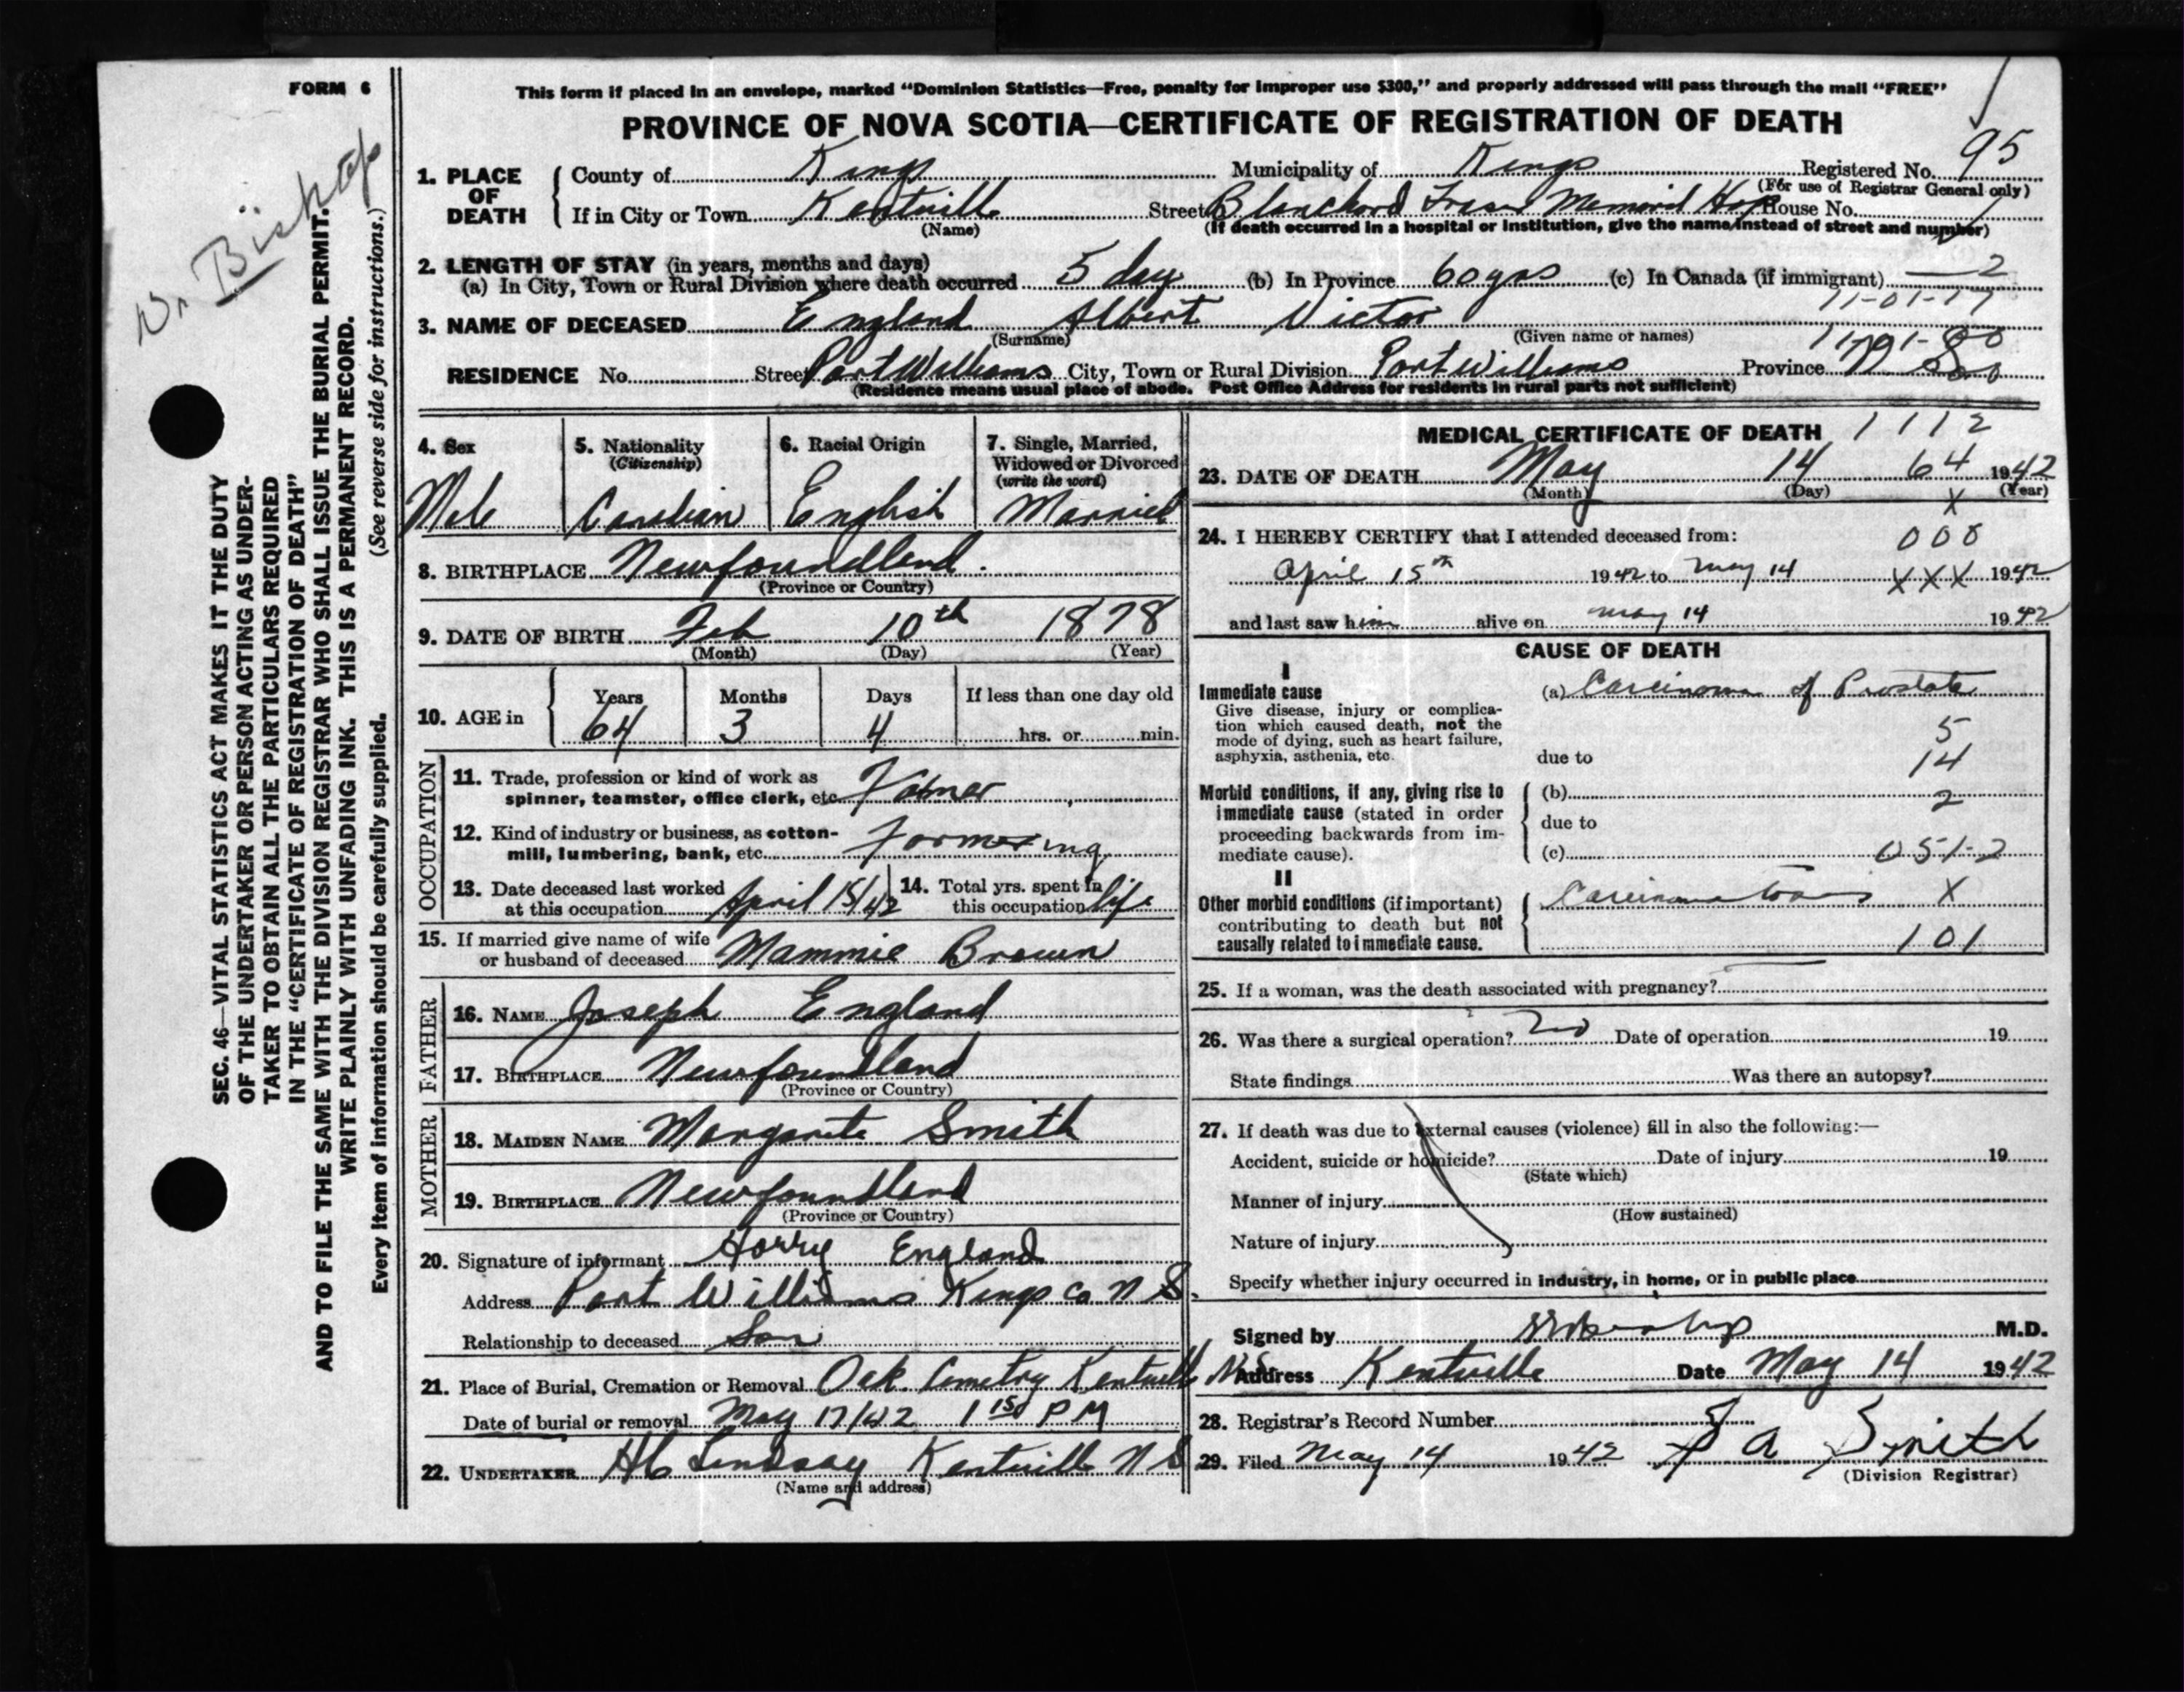 FORM 6
This form if placed in an envelope, marked "Dominion Statistics—Free, penalty for improper use $300," and properly addressed will pass through the mail "FREE"
PROVINCE OF NOVA SCOTIA—CERTIFICATE OF REGISTRATION OF DEATH
Dr Bishop
SEC. 46—VITAL STATISTICS ACT MAKES IT THE DUTY
OF THE UNDERTAKER OR PERSON ACTING AS UNDER-
TAKER TO OBTAIN ALL THE PARTICULARS REQUIRED
IN THE "CERTIFICATE OF REGISTRATION OF DEATH"
AND TO FILE THE SAME WITH THE DIVISION REGISTRAR WHO SHALL ISSUE THE BURIAL PERMIT.
WRITE PLAINLY WITH UNFADING INK. THIS IS A PERMANENT RECORD.
Every item of information should be carefully supplied. (See reverse side for instructions.)
1. PLACE OF DEATH County of Kings Municipality of Kings Registered No. 95
(For use of Registrar General only)
If in City or Town Kentville Street Blanchard Fraser Memorial Hosp House No.
(Name) (If death occurred in a hospital or institution, give the name instead of street and number)
2. LENGTH OF STAY (in years, months and days)
(a) In City, Town or Rural Division where death occurred 5 day (b) In Province 60 yrs (c) In Canada (if immigrant) 2
11-01-17
3. NAME OF DECEASED England Albert Victor
(Surname) (Given name or names)
RESIDENCE No. Street Port Williams City, Town or Rural Division Port Williams Province N S
(Residence means usual place of abode. Post Office Address for residents in rural parts not sufficient)
4. Sex 5. Nationality 6. Racial Origin 7. Single, Married,
(Citizenship) Widowed or Divorced
(write the word)
Male Canadian English Married
8. BIRTHPLACE Newfoundland.
(Province or Country)
9. DATE OF BIRTH Feb 10th 1878
(Month) (Day) (Year)
10. AGE in Years Months Days If less than one day old
64 3 4 hrs. or min.
OCCUPATION
11. Trade, profession or kind of work as
spinner, teamster, office clerk, etc. Farmer
12. Kind of industry or business, as cotton-
mill, lumbering, bank, etc. Farming
13. Date deceased last worked
at this occupation April 15/42 14. Total yrs. spent in
this occupation life
15. If married give name of wife
or husband of deceased Mammie Brown
FATHER
16. NAME Joseph England
17. BIRTHPLACE Newfoundland
(Province or Country)
MOTHER
18. MAIDEN NAME Margarite Smith
19. BIRTHPLACE Newfoundland
(Province or Country)
20. Signature of informant Harry England
Address Port Williams Kings Co N S.
Relationship to deceased Son
21. Place of Burial, Cremation or Removal Oak Cemetry Kentville N.S.
Date of burial or removal May 17/42 PM
22. UNDERTAKER Lindsay Kentville N S
(Name and address)
MEDICAL CERTIFICATE OF DEATH 1112
23. DATE OF DEATH May 14 64 1942
(Month) (Day) (Year)
X
24. I HEREBY CERTIFY that I attended deceased from: 000
April 15th 1942 to May 14 XXX 1942
and last saw him alive on May 14 1942
CAUSE OF DEATH
I
Immediate cause
Give disease, injury or complica-
tion which caused death, not the
mode of dying, such as heart failure,
asphyxia, asthenia, etc.
(a) Carcinoma of Prostate
5
due to 14
Morbid conditions, if any, giving rise to
immediate cause (stated in order
proceeding backwards from im-
mediate cause).
(b) 2
due to
(c) 051-2
II
Other morbid conditions (if important)
contributing to death but not
causally related to immediate cause.
Carcinomatosis X
101
25. If a woman, was the death associated with pregnancy?
26. Was there a surgical operation? no Date of operation 19
State findings Was there an autopsy?
27. If death was due to external causes (violence) fill in also the following:—
Accident, suicide or homicide? Date of injury 19
(State which)
Manner of injury
(How sustained)
Nature of injury
Specify whether injury occurred in industry, in home, or in public place
Signed by M.D.
Address Kentville Date May 14 1942
28. Registrar's Record Number
29. Filed May 14 1942 A Smith
(Division Registrar)